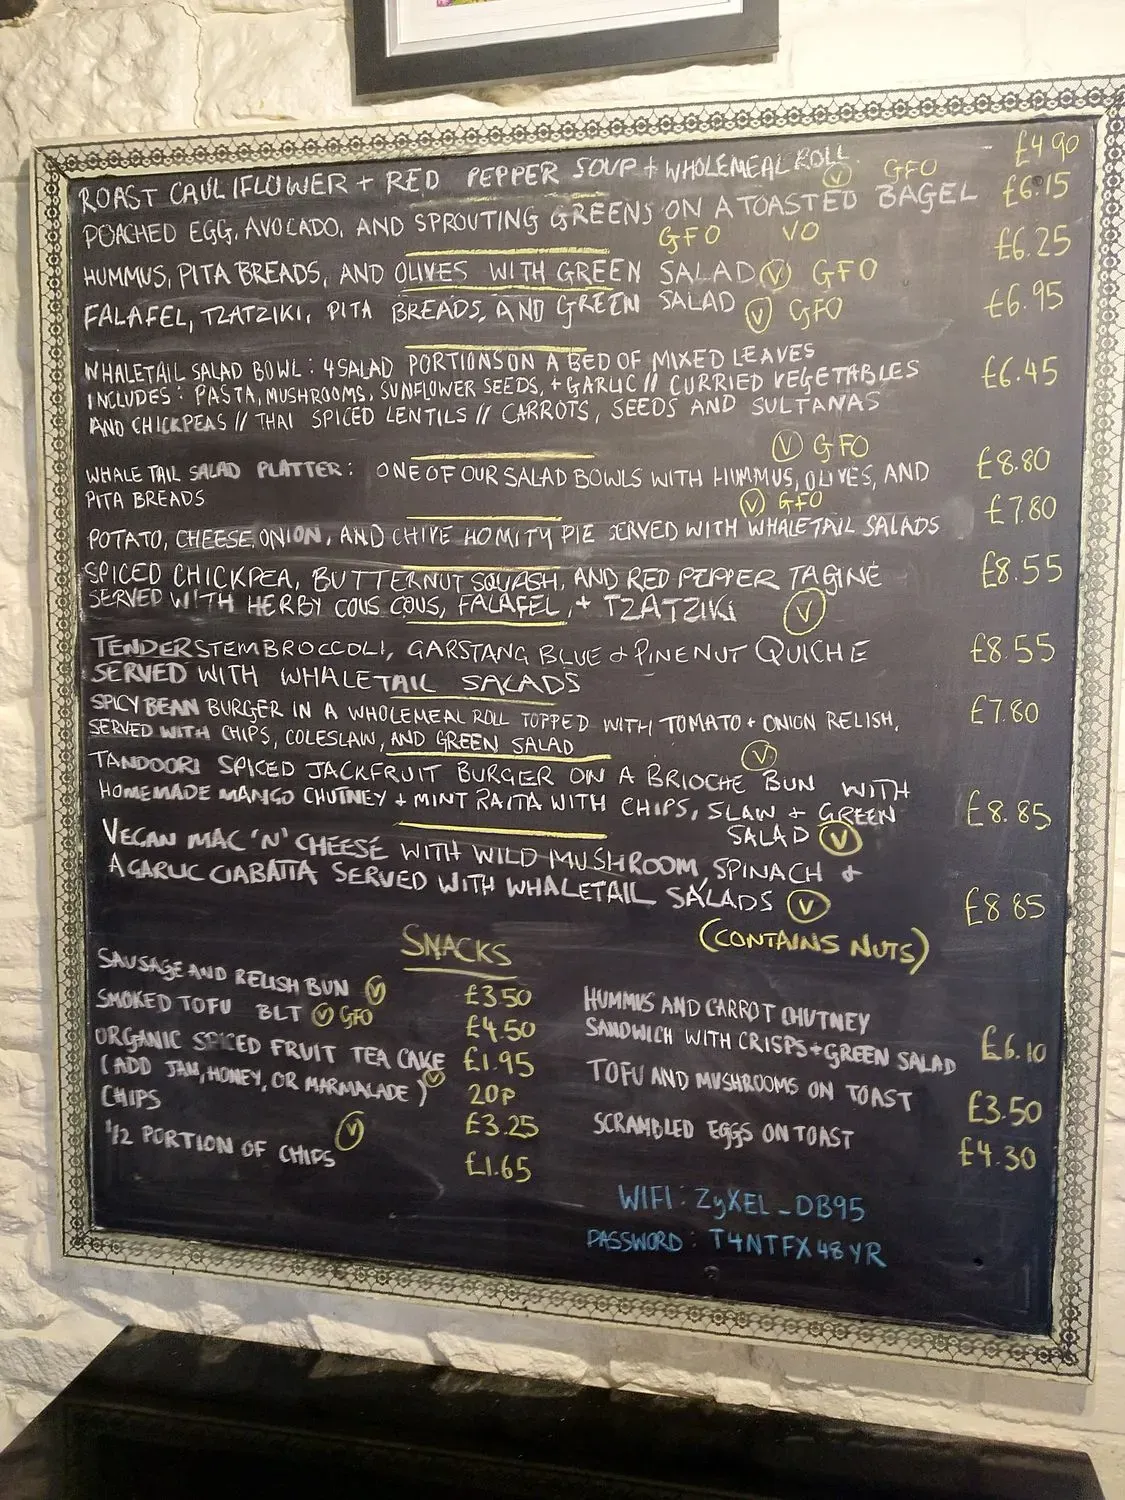 ROAST CAULIFLOWER + RED PEPPER SOUP + WHOLEMEAL ROLL. V GFO £4.90
POACHED EGG, AVOCADO, AND SPROUTING GREENS ON A TOASTED BAGEL £6.15
GFO VO
HUMMUS, PITA BREADS, AND OLIVES WITH GREEN SALAD V GFO £6.25
FALAFEL, TZATZIKI, PITA BREADS, AND GREEN SALAD V GFO £6.95
WHALETAIL SALAD BOWL: 4 SALAD PORTIONS ON A BED OF MIXED LEAVES
INCLUDES: PASTA, MUSHROOMS, SUNFLOWER SEEDS, + GARLIC // CURRIED VEGETABLES £6.45
AND CHICKPEAS // THAI SPICED LENTILS // CARROTS, SEEDS AND SULTANAS
V GFO
WHALE TAIL SALAD PLATTER: ONE OF OUR SALAD BOWLS WITH HUMMUS, OLIVES, AND £8.80
PITA BREADS V GFO
POTATO, CHEESE, ONION, AND CHIVE HOMITY PIE SERVED WITH WHALETAIL SALADS £7.80
SPICED CHICKPEA, BUTTERNUT SQUASH, AND RED PEPPER TAGINE £8.55
SERVED WITH HERBY COUS COUS, FALAFEL, + TZATZIKI V
TENDERSTEM BROCCOLI, GARSTANG BLUE & PINENUT QUICHE £8.55
SERVED WITH WHALETAIL SALADS
SPICY BEAN BURGER IN A WHOLEMEAL ROLL TOPPED WITH TOMATO + ONION RELISH, £7.80
SERVED WITH CHIPS, COLESLAW, AND GREEN SALAD V
TANDOORI SPICED JACKFRUIT BURGER ON A BRIOCHE BUN WITH
HOMEMADE MANGO CHUTNEY + MINT RAITA WITH CHIPS, SLAW & GREEN £8.85
SALAD V
VEGAN MAC 'N' CHEESE WITH WILD MUSHROOM, SPINACH &
A GARLIC CIABATTA SERVED WITH WHALETAIL SALADS V £8.85
(CONTAINS NUTS)
SNACKS
SAUSAGE AND RELISH BUN V £3.50
SMOKED TOFU BLT V GFO £4.50
ORGANIC SPICED FRUIT TEA CAKE £1.95
(ADD JAM, HONEY, OR MARMALADE) V 20P
CHIPS £3.25
1/2 PORTION OF CHIPS V £1.65
HUMMUS AND CARROT CHUTNEY
SANDWICH WITH CRISPS + GREEN SALAD £6.10
TOFU AND MUSHROOMS ON TOAST £3.50
SCRAMBLED EGGS ON TOAST £4.30
WIFI: ZyXEL_DB95
PASSWORD: T4NTFX48YR